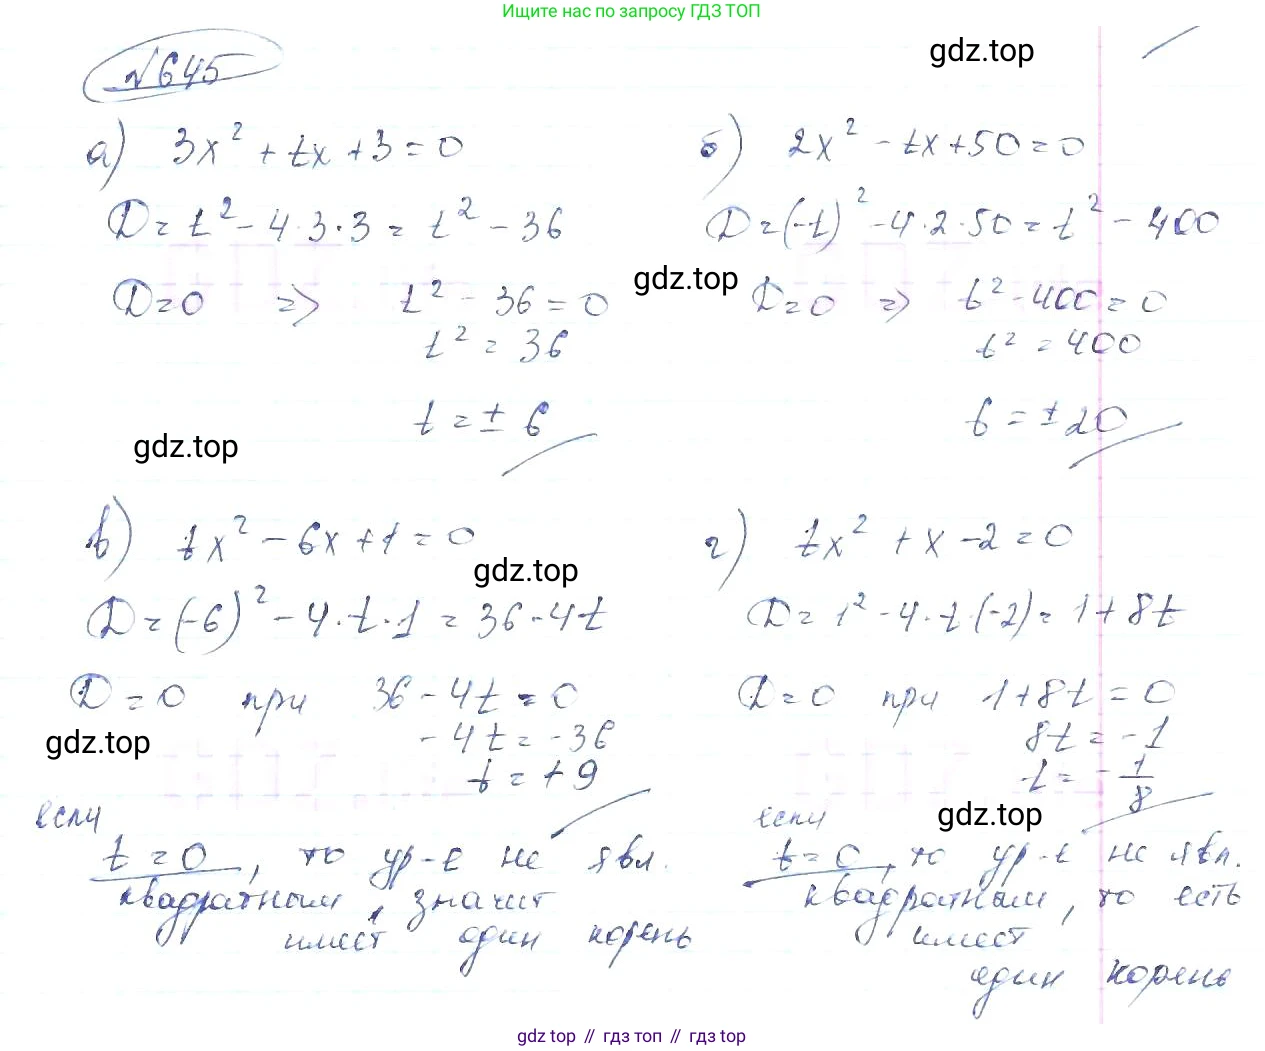 Ищите нас по запросу ГДЗ ТОП
gdz.top
№645
а) 3x² + tx + 3 = 0
D = t² - 4·3·3 = t² - 36
D = 0 => t² - 36 = 0
t² = 36
t = ± 6
gdz.top
б) 2x² - tx + 50 = 0
D = (-t)² - 4·2·50 = t² - 400
gdz.top
D = 0 => t² - 400 = 0
t² = 400
t = ± 20
в) tx² - 6x + 1 = 0
gdz.top
D = (-6)² - 4·t·1 = 36 - 4t
D = 0 при 36 - 4t = 0
gdz.top
- 4t = - 36
t = + 9
если
t = 0, то ур-е не явл.
квадратным, значит
имеет один корень
г) tx² + x - 2 = 0
D = 1² - 4·t·(-2) = 1 + 8t
D = 0 при 1 + 8t = 0
8t = - 1
t = - 1/8
gdz.top
если
t = 0, то ур-е не явл.
квадратным, то есть
имеет
один корень
gdz top // гдз топ // gdz top